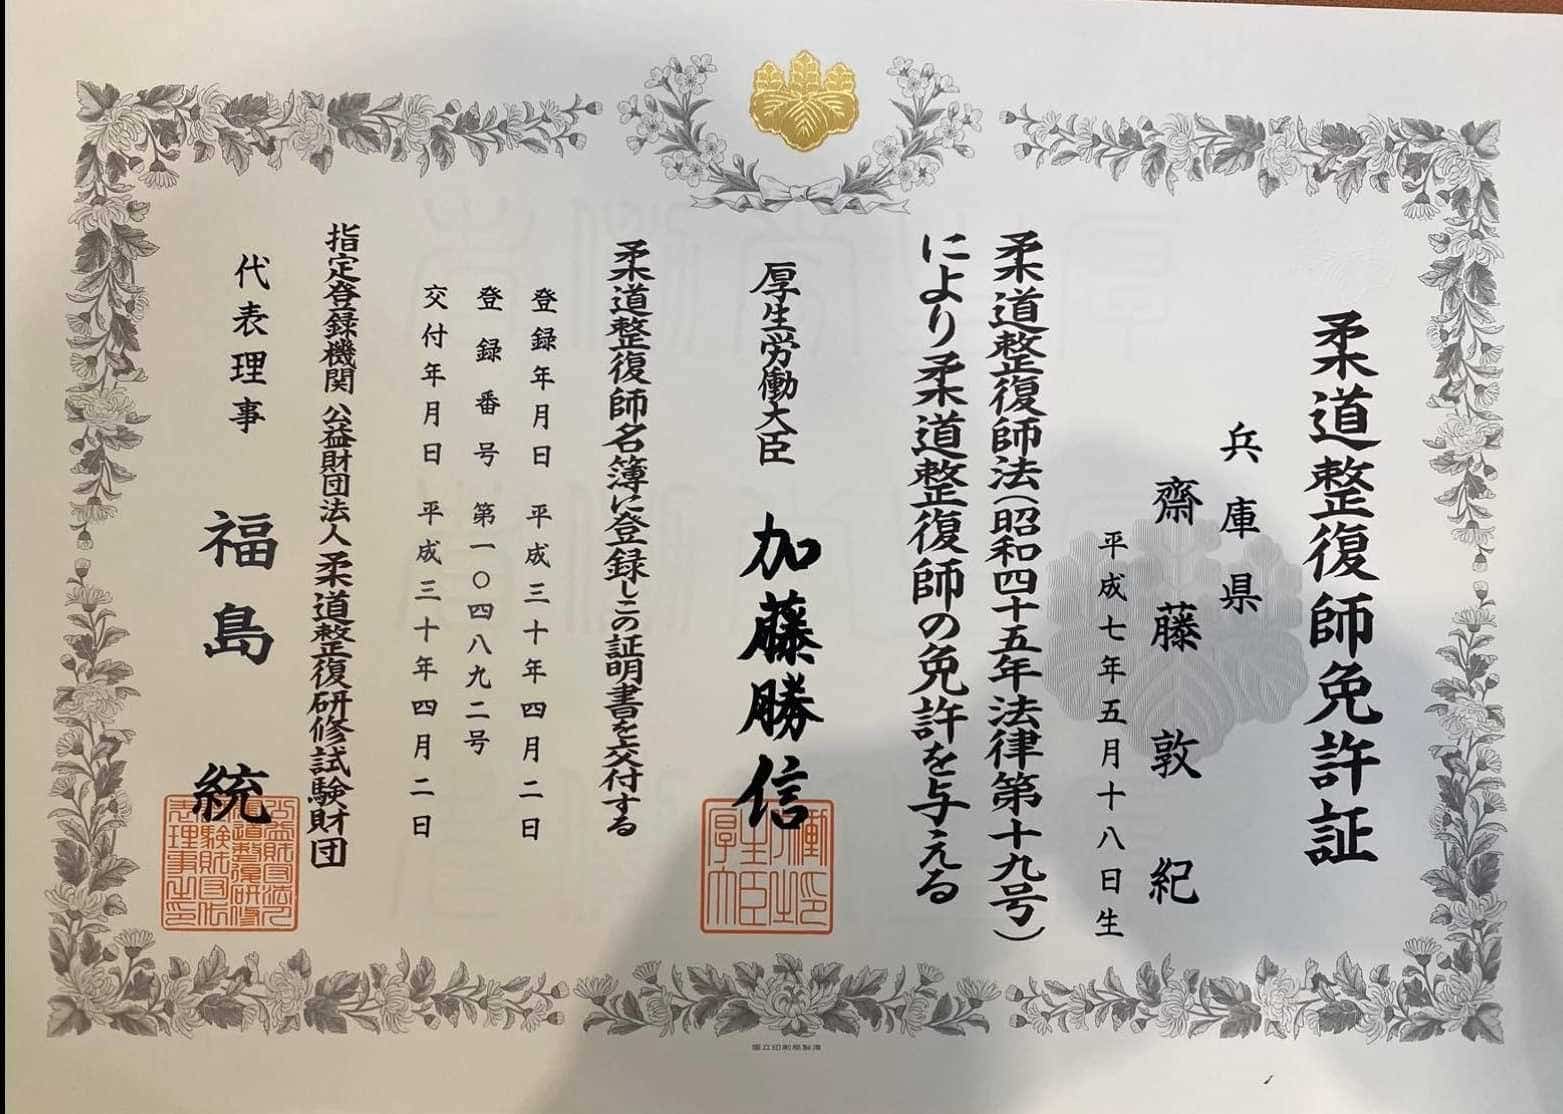 柔道整復師免許証
兵庫県
齋藤敦紀
平成七年五月十八日生
柔道整復師法（昭和四十五年法律第十九号）
により柔道整復師の免許を与える
厚生労働大臣 加藤勝信
柔道整復師名簿に登録しこの証明書を交付する
登録年月日 平成三十年四月二日
登録番号 第一〇四八九二号
交付年月日 平成三十年四月二日
指定登録機関 公益財団法人 柔道整復研修試験財団
代表理事 福島統
国立印刷局製造